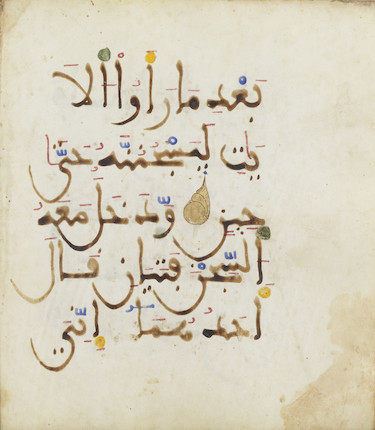 بَعْدِ مَا رَأَوُا۟ الَا
يَٰتِ لَيَسْجُنُنَّهُۥ حَتَّىٰ
حِينٖ وَدَخَلَ مَعَهُ
السِّجْنَ فَتَيَٰنِ قَالَ
أَحَدُهُمَا إِنِّي